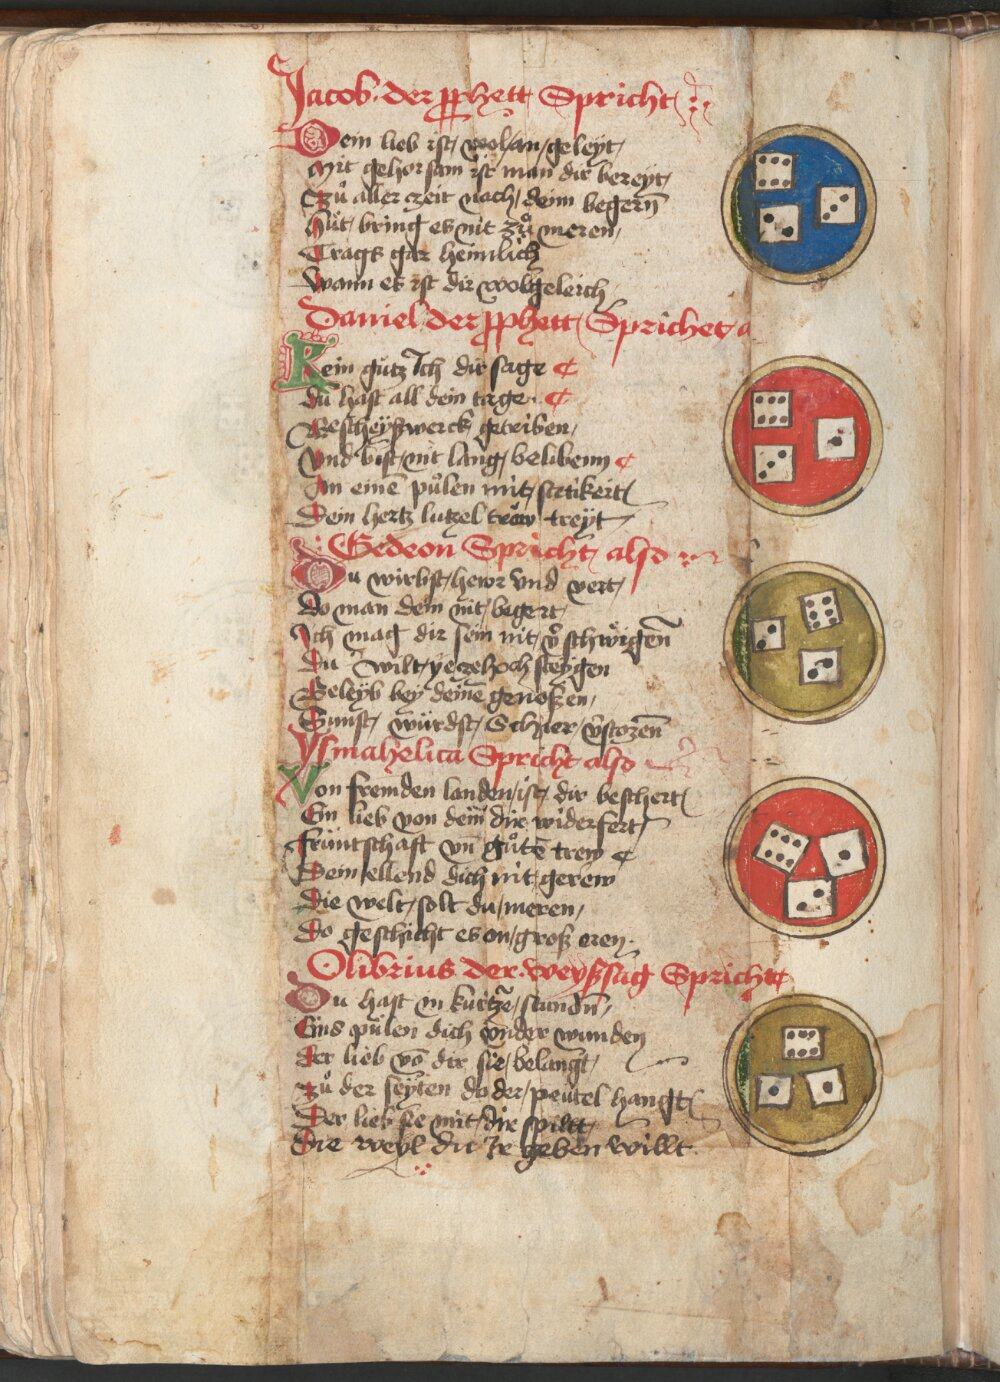 Jacob der pphett Spricht
Dein lieb ist wol an geleyt
Mit gehorsam ist man dir bereyt
Czů aller czeit nach deim begern̄
Hüt bring es nit zů meren
Trags gar heimlich
Wann es ist dir wol geleich
Daniel der pphett Sprichet a
Kein gütz Ich dir sage
Du hast all dein tage
Bescheyßwerck getriben
Vnd bist nit lang beliben
An einē půlen mit stetikeit
Dein hertz lutzel trew treyt
Gedeon Spricht also
Du wirbst hewr vnd vert
Do man dein nit begert
Ich mag dir sein nit v̊schwigen̄
Du wilt yeczehoch steygen
Beleyb bey deinē genoßen
Sunst würdst Schier v̊stozen̄
Ysmahelica Spricht also
Von fremden landen ist dir beschert
Ein lieb von dem dir widerfert
Früntschaft vn̄ gůtē trew
Dein ellend dich nit gerew
Die welt solt du meren
Do geschicht es on groß eren
Olibrius der weyssag Spricht
Du hast in kurtzē stundn̄
Eins půlen dich vnder wunden
Der lieb vō dir sie belangt
Zů der seyten do der peutel hangt
Der lieb sie mit dir spilt
Die weyl du Ir geben willt